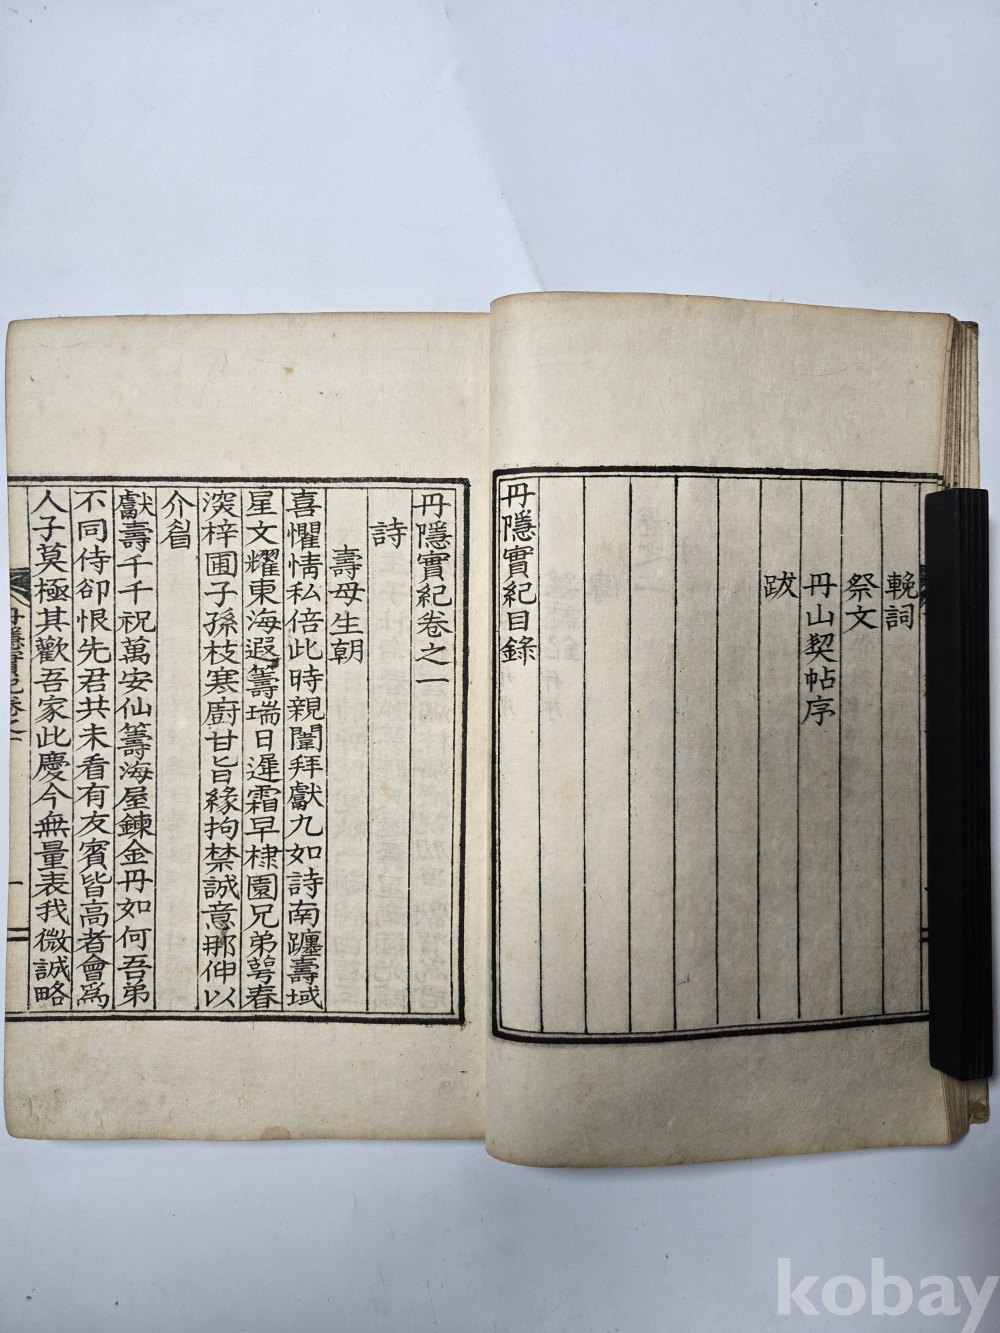 輓詞
祭文
丹山契帖序
跋
丹隱實紀目錄
丹隱實紀卷之一
詩
壽母生朝
喜懼情私倍此時親闈拜獻九如詩南躔壽域
星文耀東海遐籌瑞日遲霜早棣園兄弟萼春
深梓圃子孫枝寒廚甘旨緣拘禁誠意那伸以
介眉
獻壽千千祝萬安仙籌海屋鍊金丹如何吾弟
不同侍卻恨先君共未看有友賓皆高者會爲
人子莫極其歡吾家此慶今無量表我微誠略
丹隱實紀卷之一
一
kobay